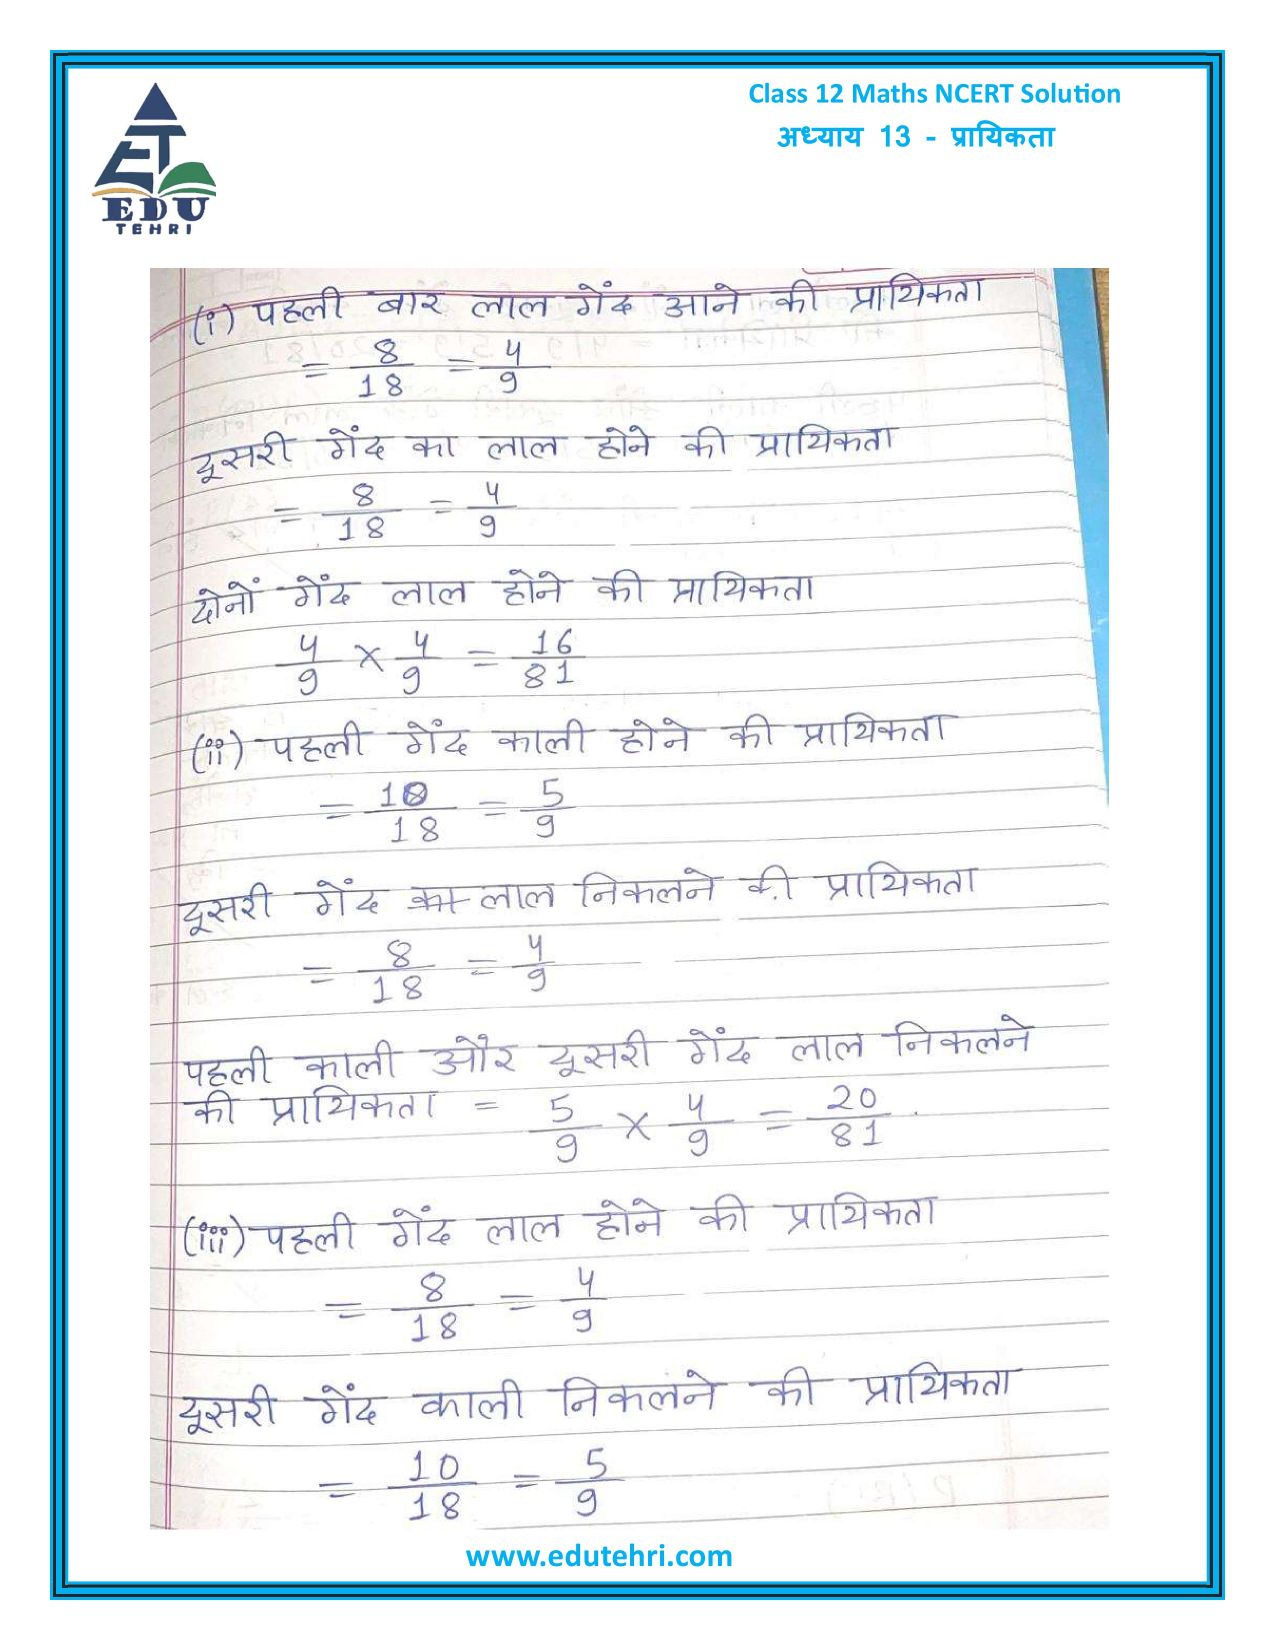 Class 12 Maths NCERT Solution
अध्याय 13 - प्रायिकता
EDU
TEHRI
(i) पहली बार लाल गेंद आने की प्रायिकता
= 8/18 = 4/9
दूसरी गेंद का लाल होने की प्रायिकता
= 8/18 = 4/9
दोनों गेंद लाल होने की प्रायिकता
4/9 × 4/9 = 16/81
(ii) पहली गेंद काली होने की प्रायिकता
= 10/18 = 5/9
दूसरी गेंद लाल निकलने की प्रायिकता
= 8/18 = 4/9
पहली काली और दूसरी गेंद लाल निकलने
की प्रायिकता = 5/9 × 4/9 = 20/81
(iii) पहली गेंद लाल होने की प्रायिकता
= 8/18 = 4/9
दूसरी गेंद काली निकलने की प्रायिकता
= 10/18 = 5/9
www.edutehri.com